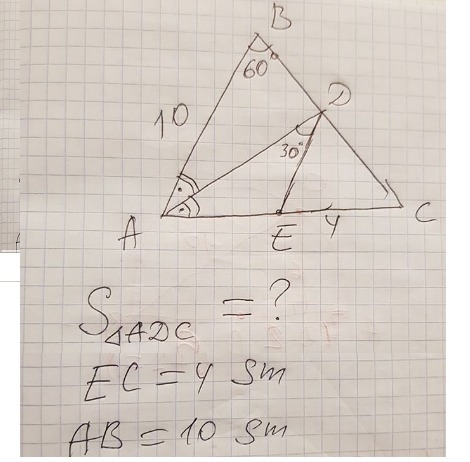 B
60°
D
10
30°
A
E
4
C
S△ADC = ?
EC = 4 sm
AB = 10 sm